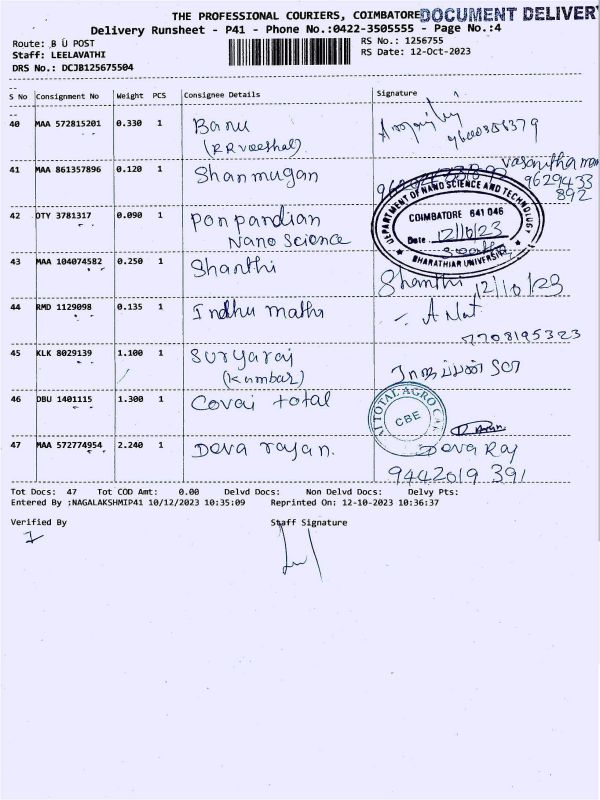 THE PROFESSIONAL COURIERS, COIMBATORE DOCUMENT DELIVERY
Delivery Runsheet - P41 - Phone No.:0422-3505555 - Page No.:4
Route: B U POST
RS No.: 1256755
Staff: LEELAVATHI
RS Date: 12-Oct-2023
DRS No.: DCJB125675504
S No Consignment No Weight PCS Consignee Details Signature
40 MAA 572815201 0.330 1 Banu
(RR veeshal)
9600858379
41 MAA 861357896 0.120 1 Shanmugan
Vasantha mani
9629433
892
42 DTY 3781317 0.090 1 Ponpandian
Nano Science
DEPARTMENT OF NANO SCIENCE AND TECHNOLOGY
COIMBATORE 641 046
Date 12/10/23
BHARATHIAR UNIVERSITY
43 MAA 104074582 0.250 1 Shanthi
Shanthi 12/10/23
44 RMD 1129098 0.135 1 Indhu mathi
7708195323
45 KLK 8029139 1.100 1 Suryaraj
(Kumbar)
46 DBU 1401115 1.300 1 Covai total
TOTAL AGRO
CBE
47 MAA 572774954 2.240 1 Deva rajan.
Deva Raj
9442019 391
Tot Docs: 47 Tot COD Amt: 0.00 Delvd Docs: Non Delvd Docs: Delvy Pts:
Entered By :NAGALAKSHMIP41 10/12/2023 10:35:09 Reprinted On: 12-10-2023 10:36:37
Verified By
Staff Signature